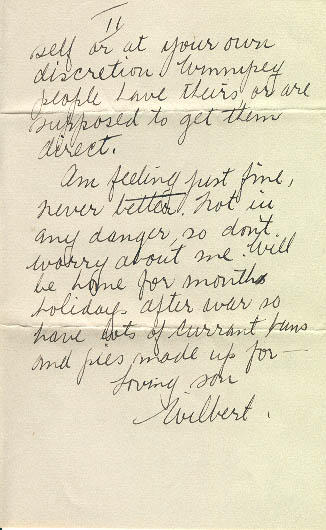 11
self or at your own
discretion Winnipeg
people have theirs or are
supposed to get them
direct.
Am feeling just fine,
never better. Not in
any danger, so don't
worry about me. Will
be home for months
holidays after war so
have lots of currant buns
and pies made up for —
Loving son
Wilbert.